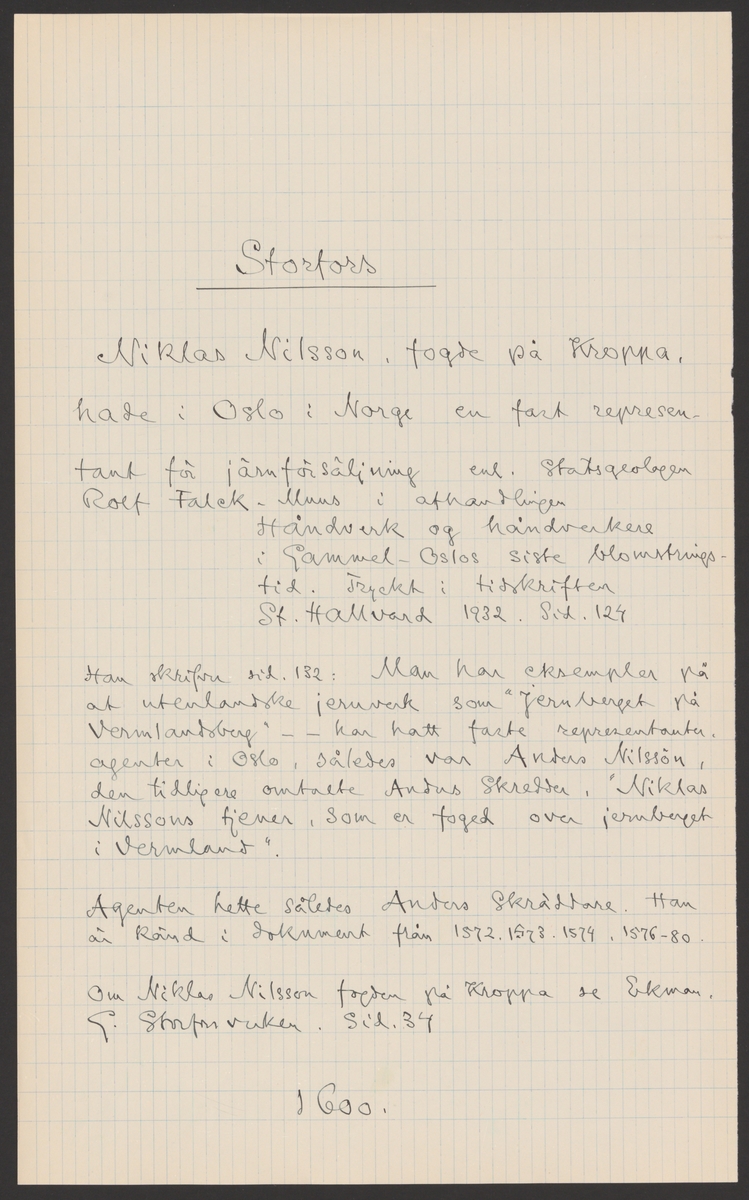 Storfors
Niklas Nilsson, fogde på Kroppa,
hade i Oslo i Norge en fast represen-
tant för järnförsäljning enl. Statsgeologen
Rolf Falck-Muus i afhandlingen
Håndverk og håndverkere
i Gammel-Oslos siste blomstrings-
tid. Tryckt i tidskriften
St. Hallvard 1932. Sid. 124
Han skrifver sid. 132: Man har eksempler på
at utenlandske jernverk som "Jernberget på
Vermlandsberg" - - har hatt faste representanter,
agenter i Oslo, således var Anders Nilssön,
den tidligere omtalte Anders Skredder, "Niklas
Nilssons tjener, som er foged over jernberget
i Vermland".
Agenten hette således Anders Skräddare. Han
är känd i dokument från 1572. 1573. 1574. 1576-80.
Om Niklas Nilsson fogden på Kroppa se Ekman,
G. Storforsverken. Sid. 34
1600.